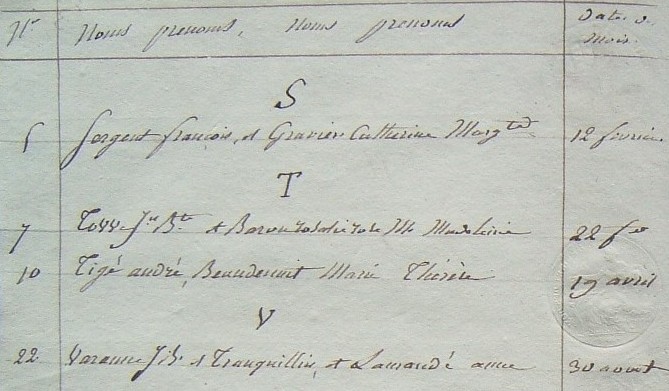 Nos Noms prenoms, Noms prenoms Date. &
Mois.
S
5 Sergent françois, et Gravier Catherine Margte 12 février
T
7 Jn Bte et Baron Me Madeleine 22 fer
10 Tigé andré, Beaudenoit Marie Thérèse 19 avril
V
22 Varanne J B. et Tranquillin, et Lamandé anne 30 aout